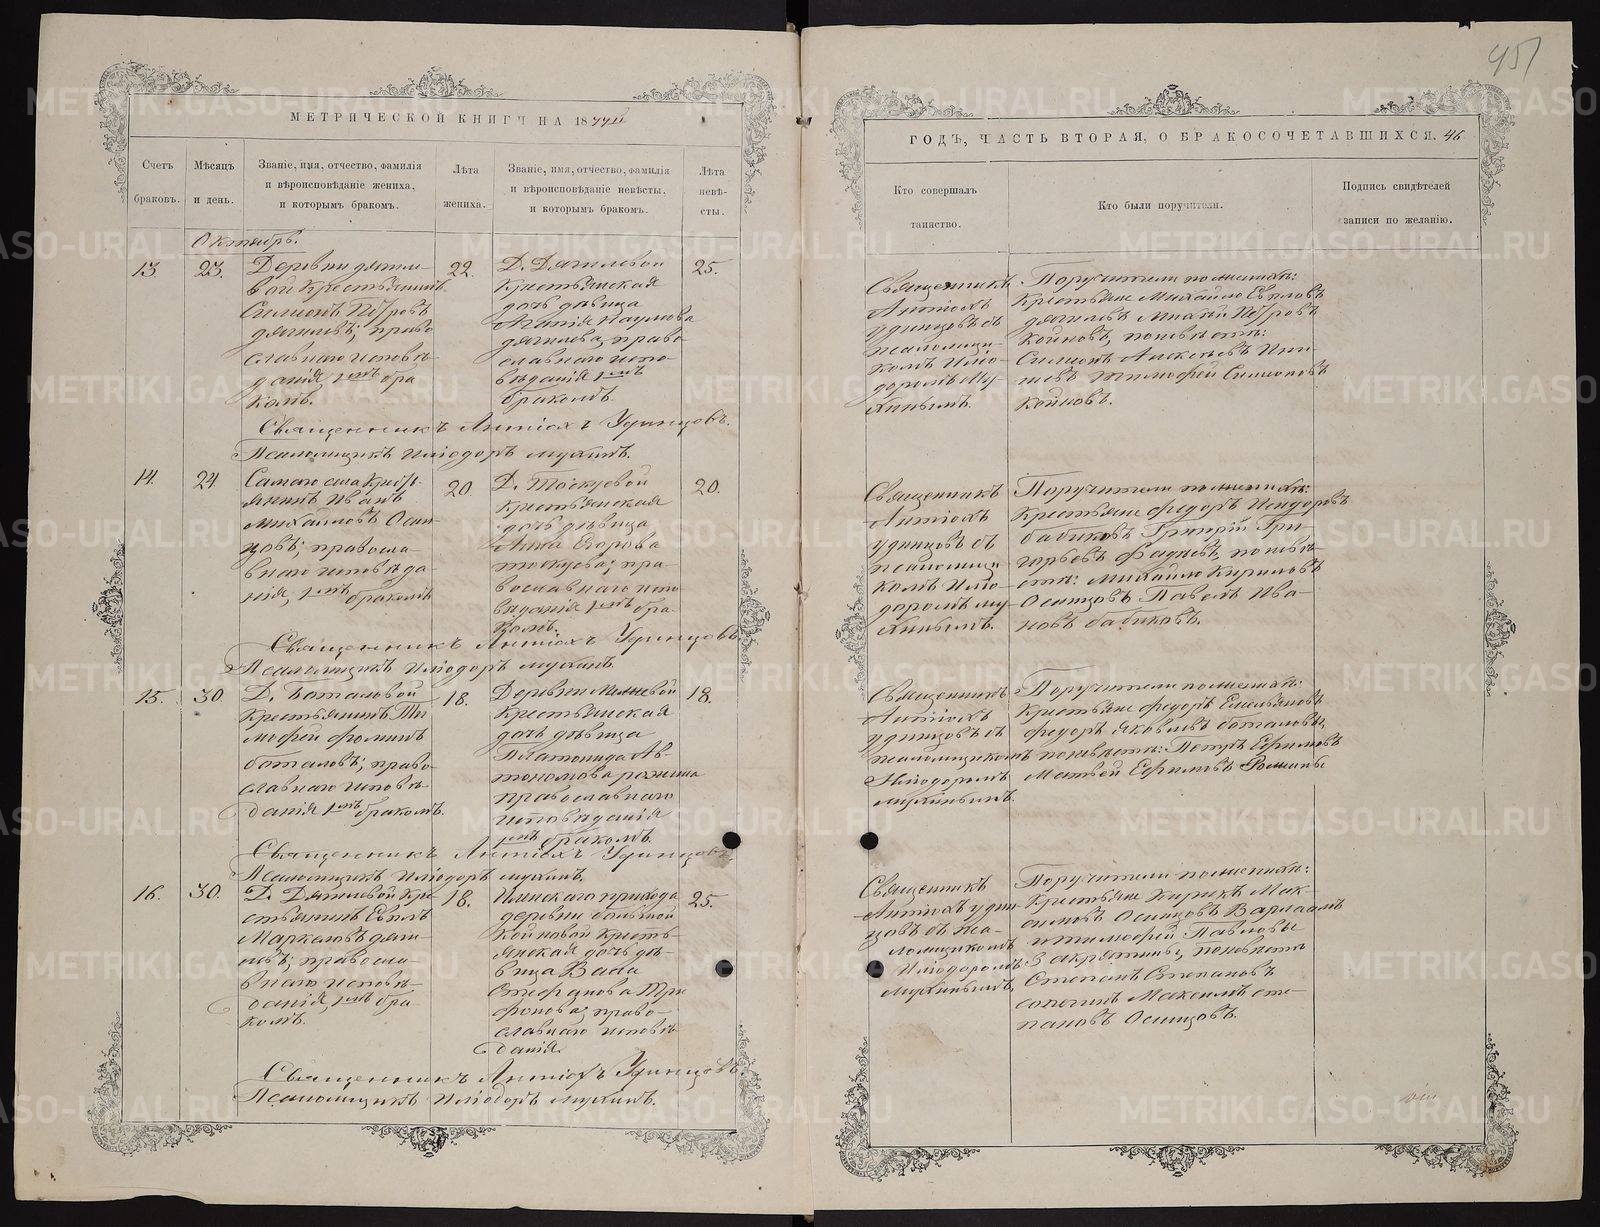 МЕТРИЧЕСКОЙ КНИГИ НА 18
Счетъ браковъ.
Мѣсяцъ и день.
Званіе, имя, отчество, фамилія и вѣроисповѣданіе жениха, и которымъ бракомъ.
Лѣта жениха.
Званіе, имя, отчество, фамилія и вѣроисповѣданіе невѣсты, и которымъ бракомъ.
Лѣта невѣсты.
Октябрь.
13.
23.
Деревни Дягиле-
вой крестьянинъ
Симеонъ Петровъ
Дягилевъ; право
славнаго исповѣ-
данія, 1мъ бра
комъ.
22.
Д. Дягилевой
крестьянская
дочь дѣвица
Агапія Наумова
Дягилева, право-
славнаго испо-
вѣданія 1мъ
бракомъ.
25.
Священникъ Антіохъ Удинцовъ.
Псаломщикъ Иліодоръ Мухинъ.
14.
24
Самаго села крест-
янинъ Иванъ
Михайловъ Осин-
цовъ; правосла-
внаго исповѣда-
нія, 1мъ бракомъ
20.
Д. Тоскуевой
крестьянская
дочь дѣвица
Анна Егорова
Тоскуева; пра-
вославнаго испо
вѣданія 1мъ бра-
комъ.
20.
Священникъ Антіохъ Удинцовъ
Псаломщикъ Иліодоръ Мухинъ.
15.
30.
Д. Боталовой
крестьянинъ Ти
мофей Фоминъ
Боталовъ; право-
славнаго исповѣ-
данія 1мъ бракомъ.
18.
Деревни
крестьянская
дочь дѣвица
Платонида Ав-
тономова
православнаго
исповѣданія
1мъ бракомъ.
18.
Священникъ Антіохъ Удинцовъ
Псаломщикъ Иліодоръ Мухинъ.
16.
30.
Д. Дягилевой кре-
стьянинъ Евѳилъ
Маркеловъ Дяги-
левъ; правосла-
внаго исповѣ-
данія, 1мъ бра
комъ.
18.
прихода
деревни большой
Койновой кресть-
янская дочь дѣ-
вица Васса
Стефанова Три
фонова, право-
славнаго исповѣ
данія.
25.
Священникъ Антіохъ Удинцовъ
Псаломщикъ Иліодоръ Мухинъ.
451
ГОДЪ, ЧАСТЬ ВТОРАЯ, О БРАКОСОЧЕТАВШИХСЯ. 46
Кто совершалъ таинство.
Кто были поручители.
Подпись свидѣтелей записи по желанію.
Священникъ
Антіохъ
Удинцовъ съ
псаломщи-
комъ Иліо-
доромъ Му-
хинымъ.
Поручители по женихѣ:
крестьяне Михайло Евѳиловъ
Дягилевъ Михей Петровъ
Койновъ, по невѣстѣ:
Симеонъ Алексѣевъ
Тимофей Симеоновъ
Койновъ.
Священникъ
Антіохъ
Удинцовъ съ
псаломщи-
комъ Иліо-
доромъ Му-
хинымъ.
Поручители по женихѣ:
крестьяне Федоръ Исидоровъ
Бабиковъ Григорій Гри-
горьевъ по невѣ-
стѣ: Михайло Кириловъ
Осинцовъ Павелъ Ива-
новъ Бабиковъ.
Священникъ
Антіохъ
Удинцовъ съ
псаломщикомъ
Иліодоромъ
Мухинымъ.
Поручители по женихѣ:
крестьяне Федоръ Емельяновъ
Федоръ Яковлевъ Боталовы,
по невѣстѣ: Петръ Ефимовъ
Матвей Ефимовъ
Священникъ
Антіохъ Удин
цовъ съ пса-
ломщикомъ
Иліодоромъ
Мухинымъ.
Поручители по женихѣ:
крестьяне Кирикъ Мак-
симовъ Осинцовъ Варлаамъ
и Тимофей Павловы
Закрятины, по невѣстѣ
Степанъ Степановъ
Максимъ Сте-
пановъ Осинцовъ.
METRIKI.GASO-URAL.RU